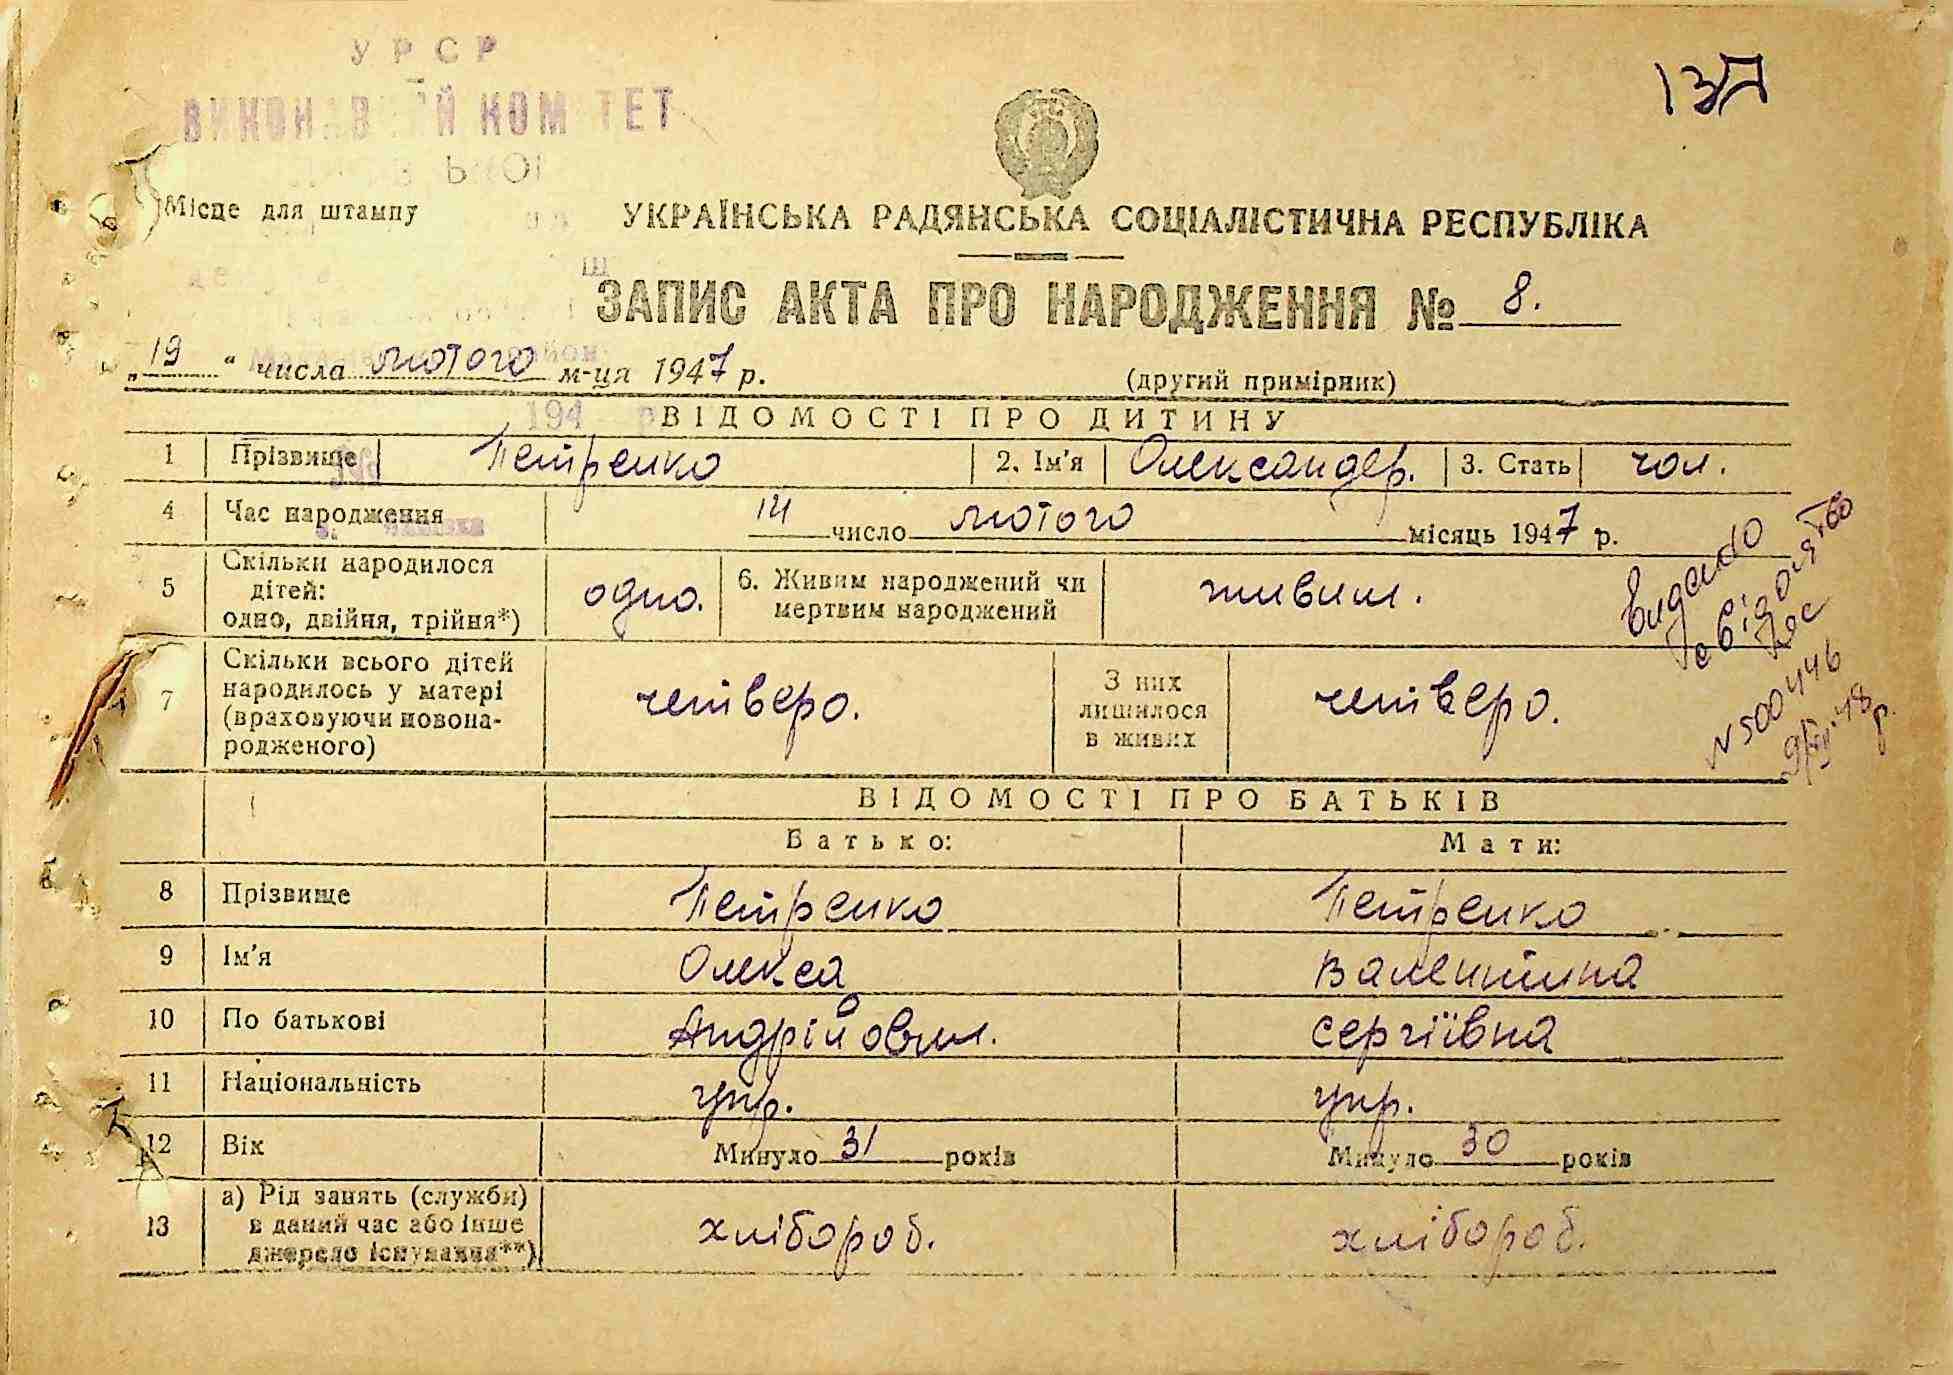 УРСР
ВИКОНАВЧИЙ КОМІТЕТ
13Д
Місце для штампу
УКРАЇНСЬКА РАДЯНСЬКА СОЦІАЛІСТИЧНА РЕСПУБЛІКА
ЗАПИС АКТА ПРО НАРОДЖЕННЯ № 8.
„19“ числа лютого м-ця 1947 р.
(другий примірник)
194 р
ВІДОМОСТІ ПРО ДИТИНУ
1 Прізвище Петренко 2. Ім'я Олександер. 3. Стать чол.
4 Час народження 14 число лютого місяць 1947 р.
5 Скільки народилося дітей: одно, двійня, трійня*) одно. 6. Живим народжений чи мертвим народжений живим.
7 Скільки всього дітей народилось у матері (враховуючи новона-родженого) четверо. З них лишилося в живих четверо.
Видано
свідоцтво
N 500446
ВІДОМОСТІ ПРО БАТЬКІВ
Батько: Мати:
8 Прізвище Петренко Петренко
9 Ім'я Олекса Валентина
10 По батькові Андрійович. Сергіївна
11 Національність укр. укр.
12 Вік Минуло 31 років Минуло 30 років
13 а) Рід занять (служби) в даний час або інше джерело існування**) хлібороб. хлібороб.